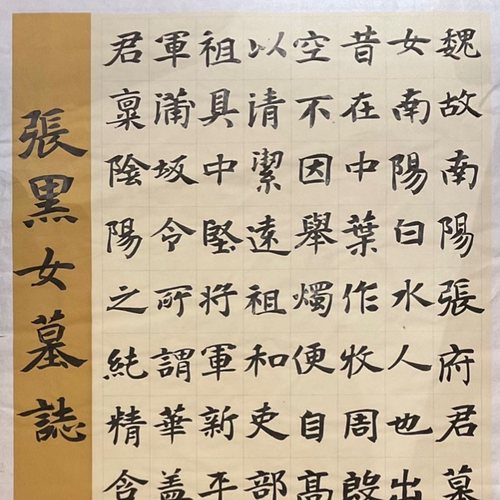 魏故南陽張府君墓
女南陽白水人也出
昔在中葉作牧周殷
空不因舉燭便自高
以清潔遠祖和吏部
祖具中堅將軍新平
軍蒲坂令所謂華蓋
君稟陰陽之純精含
張黑女墓誌